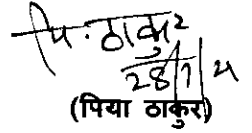 पि. ठाकुर
28/1/24
(पिया ठाकुर)